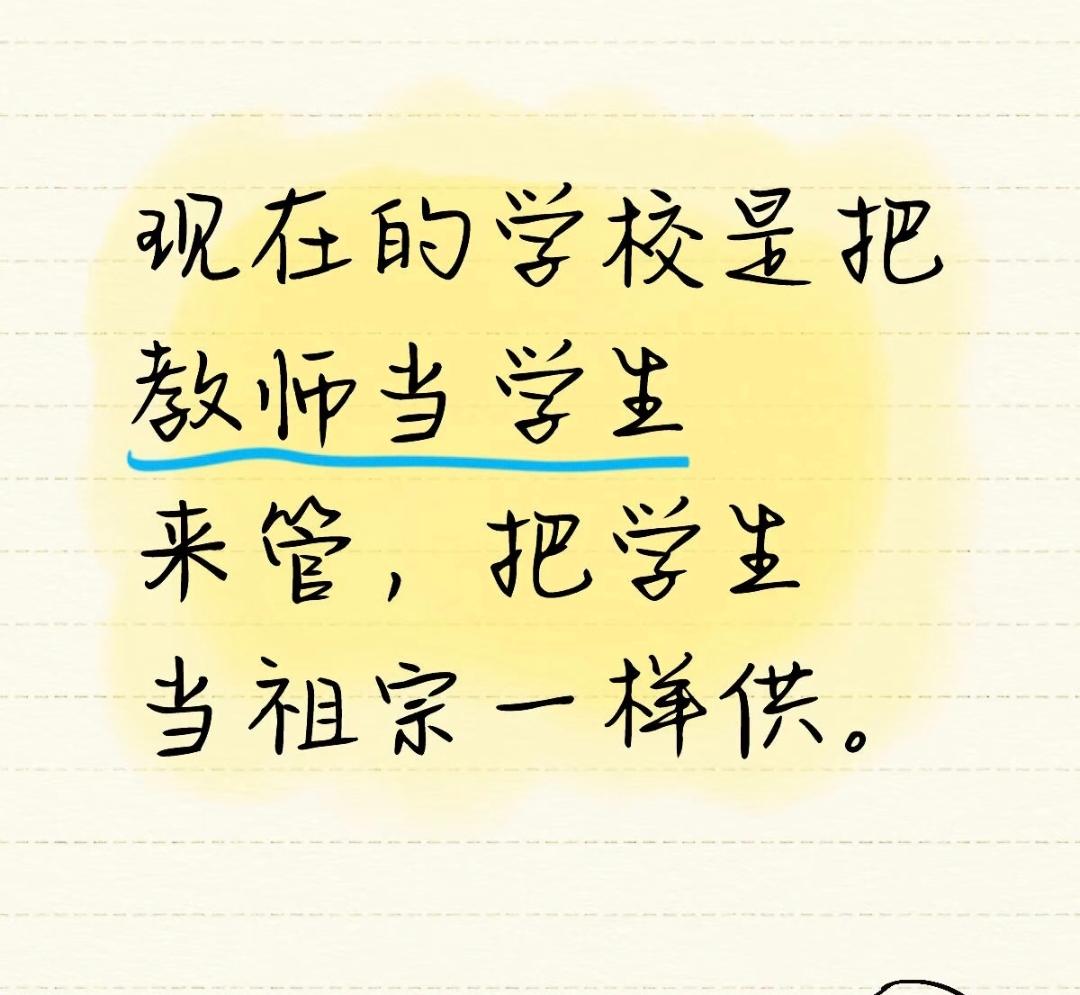 现在的学校是把
教师当学生
来管，把学生
当祖宗一样供。